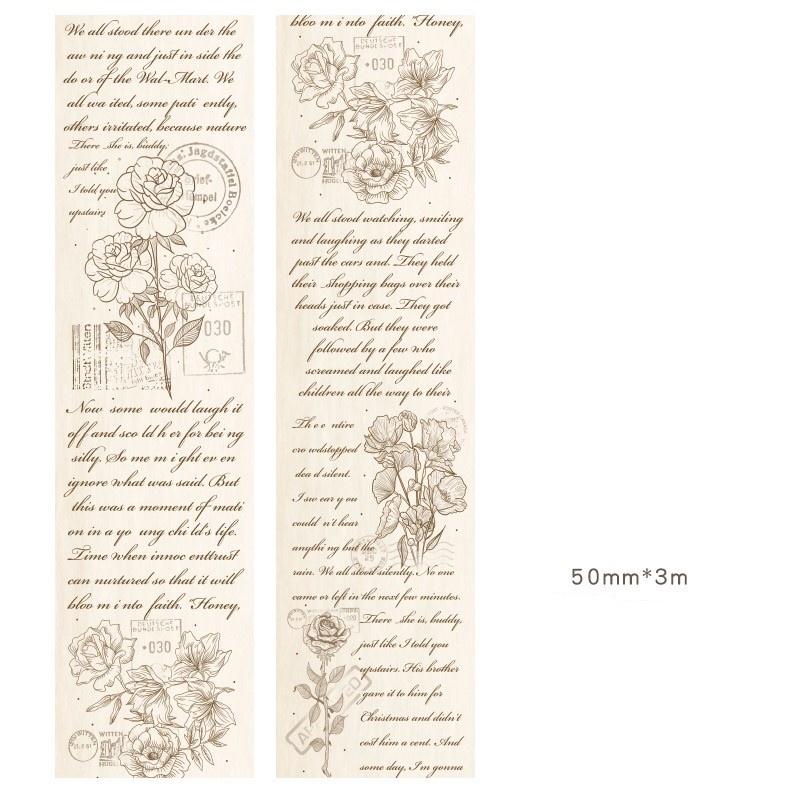 We all stood there un der the
aw ni ng and just in side the
do or of the Wal-Mart. We
all wa ited, some pati ently,
others irritated, because nature
There she is, buddy,
just like
I told you
upstairs
Jagdstaffel Boelcke
Brief-
Stempel
DEUTSCHE
BUNDESPOST
030
Now some would laugh it
off and sco ld h er for bei ng
silly. So me m i ght ev en
ignore what was said. But
this was a moment of mati
on in a yo ung chi ld's life.
Time when innoc enttrust
can nurtured so that it will
bloo m i nto faith. "Honey,
DEUTSCHE
BUNDESPOST
·030
WITTEN
bloo m i nto faith. "Honey,
DEUTSCHE
BUNDESPOST
·030
WITTEN
We all stood watching, smiling
and laughing as they darted
past the cars and. They held
their shopping bags over their
heads just in case. They got
soaked. But they were
followed by a few who
screamed and laughed like
children all the way to their
Th e e ntire
cro wdstopped
dea d silent.
I sw ear y ou
could n't hear
anythi ng but the
rain. We all stood silently. No one
came or left in the next few minutes.
There she is, buddy,
just like I told you
upstairs. His brother
gave it to him for
Christmas and didn't
cost him a cent. And
some day, I'm gonna
50mm*3m